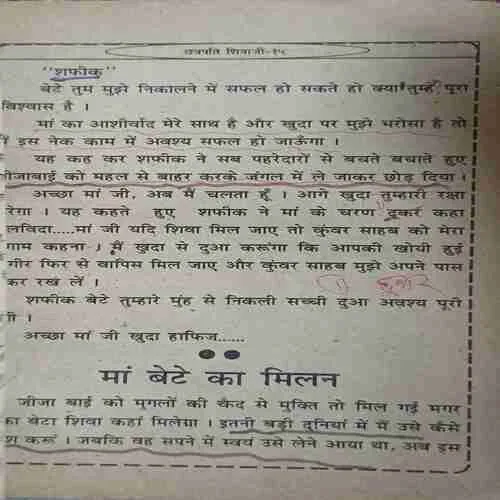 छत्रपति शिवाजी-१५
"शफीक"
बेटे तुम मुझे निकालने में सफल हो सकते हो क्या तुम्हें पूरा
विश्वास है ।
मां का आशीर्वाद मेरे साथ है और खुदा पर मुझे भरोसा है तो
मैं इस नेक काम में अवश्य सफल हो जाऊँगा ।
यह कह कर शफीक ने सब पहरेदारों से बचते बचाते हुए
जीजाबाई को महल से बाहर करके जंगल में ले जाकर छोड़ दिया ।
अच्छा मां जी, अब मैं चलता हूँ । आगे खुदा तुम्हारी रक्षा
करेगा । यह कहते हुए शफीक ने मां के चरण छूकर कहा
अलविदा....मां जी यदि शिवा मिल जाए तो कुंवर साहब को मेरा
सलाम कहना । मैं खुदा से दुआ करूंगा कि आपकी खोयी हुई
फिर से वापिस मिल जाए और कुंवर साहब मुझे अपने पास
कर रख लें ।
शफीक बेटे तुम्हारे मुंह से निकली सच्ची दुआ अवश्य पूरी
।
अच्छा मां जी खुदा हाफिज......
मां बेटे का मिलन
जीजा बाई को मुगलों की कैद से मुक्ति तो मिल गई मगर
का बेटा शिवा कहां मिलेगा । इतनी बड़ी दुनियां में मैं उसे कैसे
करूं । जबकि वह सपने में स्वयं उसे लेने आया था, अब इस